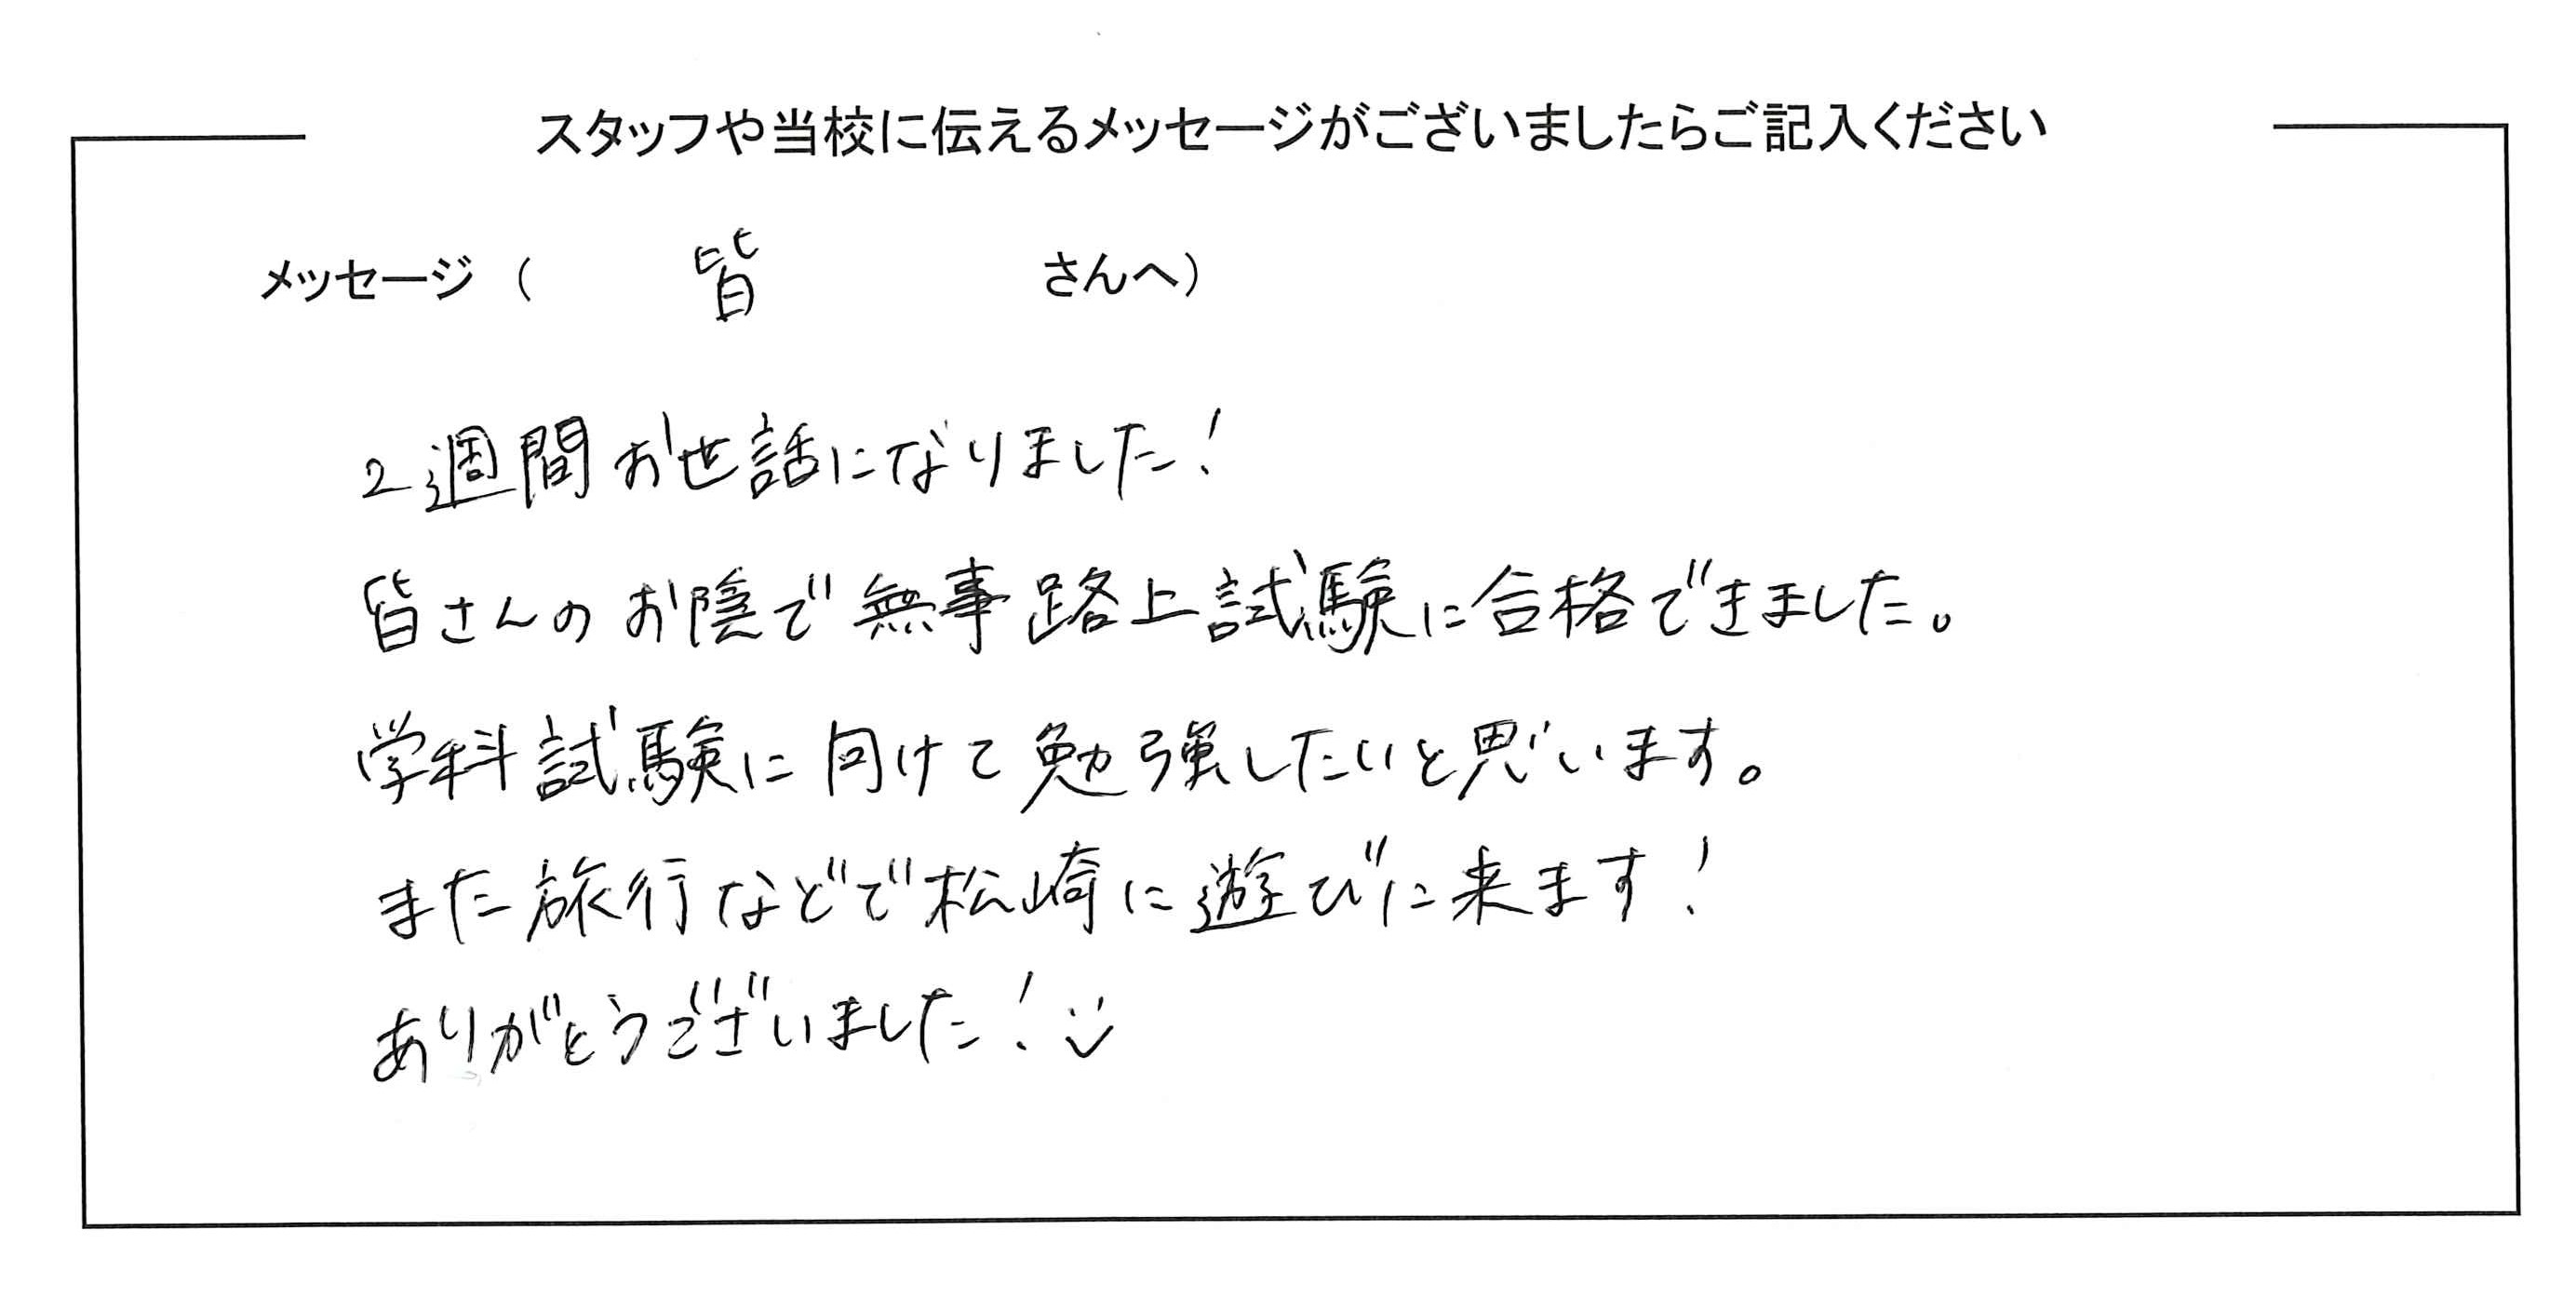 スタッフや当校に伝えるメッセージがございましたらご記入ください
メッセージ（ 皆 さんへ）
2週間お世話になりました！
皆さんのお陰で無事路上試験に合格できました。
学科試験に向けて勉強したいと思います。
また旅行などで松崎に遊びに来ます！
ありがとうございました！